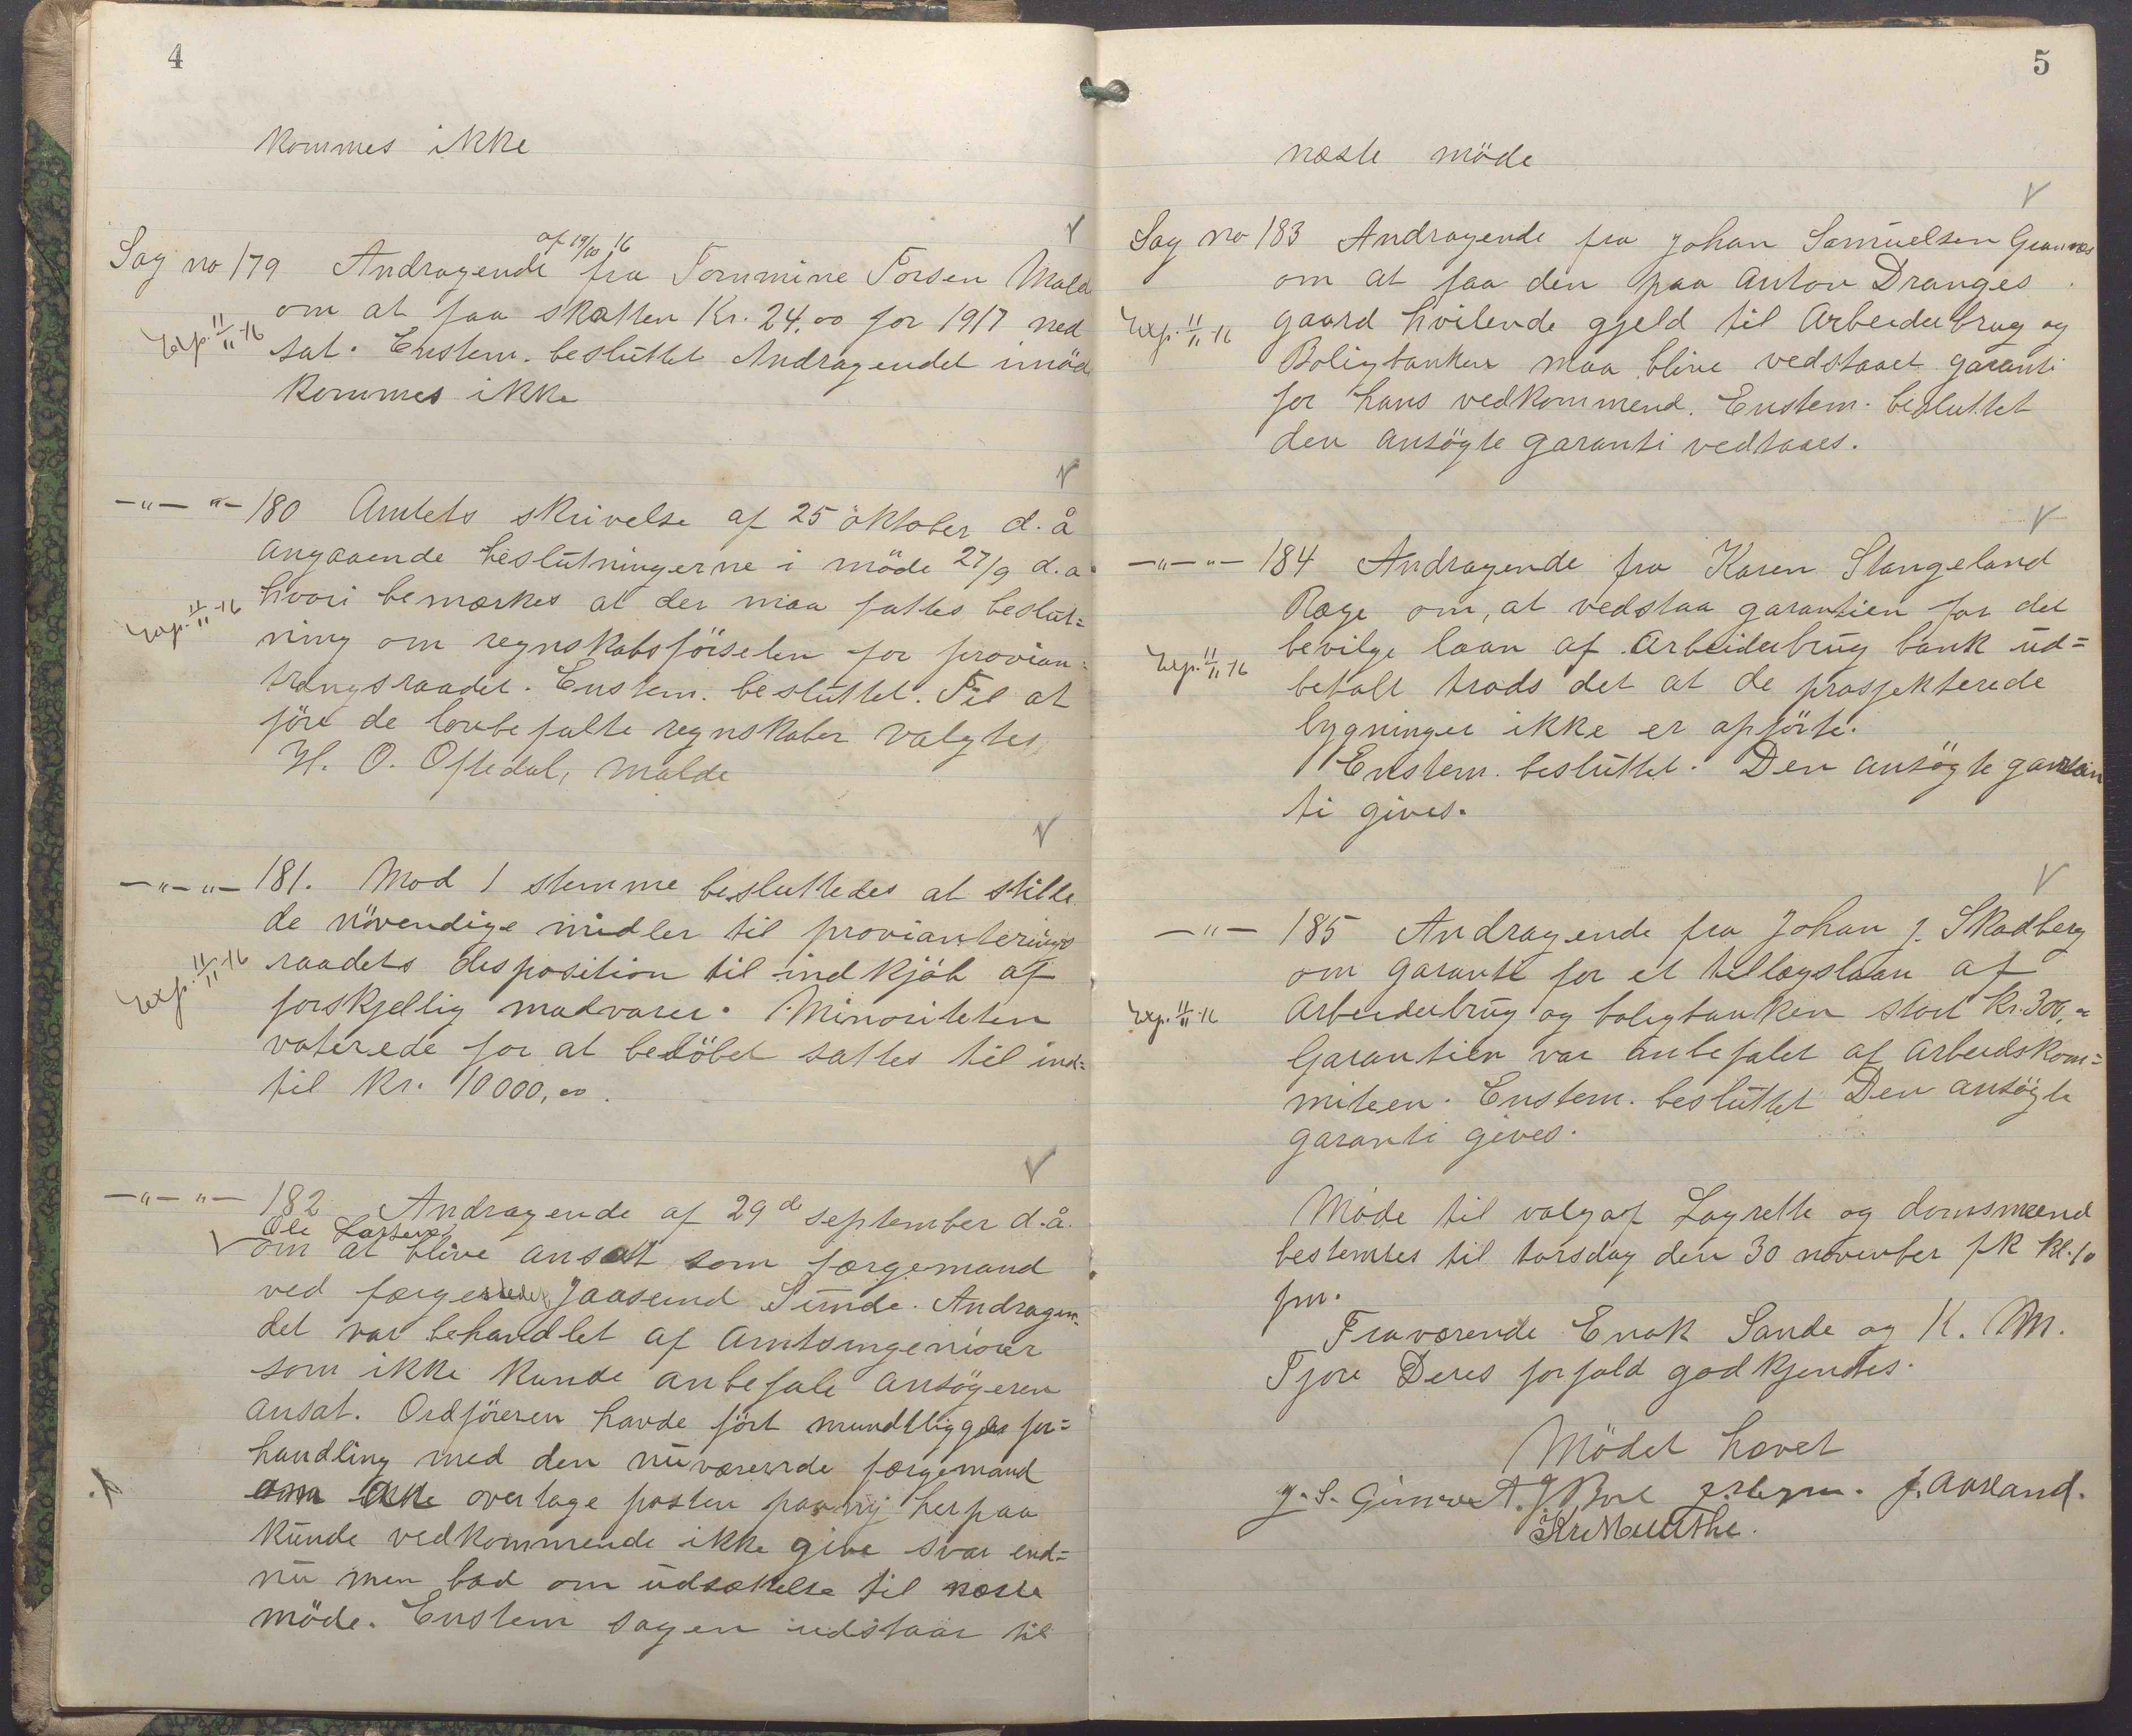 4
kommes ikke
af 19/10 16
Sag no 179 Andragende fra Tommine Torsen Malde
om at faa skatten Kr. 24,00 for 1917 ned
Exp. 11/11-16
sat. Enstem. besluttet Andragendet imöde
kommes ikke
-"- "- 180 Amtets skrivelse af 25 oktober d.å
angaaende beslutningerne i möde 27/9 d.a.
hvori bemærkes at der maa fattes beslut=
Exp. 11/11-16
ning om regnskabsförselen for provian=
tringsraadet. Enstem. besluttet. Til at
före de lovbefalte regnskaber valgtes
H. O. Oftedal, Malde
-"- "- 181. Mod 1 stemme besluttedes at stille
de növendige midler til provianterings
raadets disposition til indkjöb af
Exp. 11/11-16
forskjellig madvarer. Minoriteten
voterede for at belöbet sattes til ind=
til Kr. 10000,00.
-"- "- 182 Andragende af 29de september d.å.
Ole Larsen
om at blive ansat som færgemand
ved færgestedet Jaasund Sunde. Andragen=
det var behandlet af Amtsingeniöer
som ikke kunde anbefale ansögeren
ansat. Ordföreren havde fört mundtliggde for=
handling med den nuværende færgemand
overtage posten paany herpaa
kunde vedkommende ikke give svar end=
nu men bad om udsættelse til næste
möde. Enstem sagen udstaar til
5
næste möde
Sag no 183 Andragende fra Johan Samuelsen Grannes
om at faa den paa Anton Dranges
gaard hvilende gjeld til Arbeiderbrug og
Exp. 11/11-16
Boligbanken maa blive vedstaaet garanti
for hans vedkommend. Enstem. besluttet
den ansögte garanti vedtaaes.
-"- "- 184 Andragende fra Karen Stangeland
Ræge om, at vedstaa garantien for det
bevilge laan af Arbeiderbrug bank ud=
Exp. 11/11-16
betalt trods det at de prosjekterede
bygninger ikke er opförte.
Enstem. besluttet. Den ansögte garan
ti gives.
-"- 185 Andragende fra Johan J. Skadberg
om garanti for et tillægslaan af
Exp. 11/11-16
Arbeiderbrug og boligbanken stort Kr. 300,
Garantien var anbefalet af Arbeidskom=
miteen. Enstem. besluttet Den ansögte
garanti gives.
Möde til valg af Lagrette og domsmænd
bestemtes til torsdag den 30 november fk kl. 10
fm.
Fraværende Enok Sande og K. M.
Tjore Deres forfald godkjendtes.
Mödet hævet
J. Aasland.